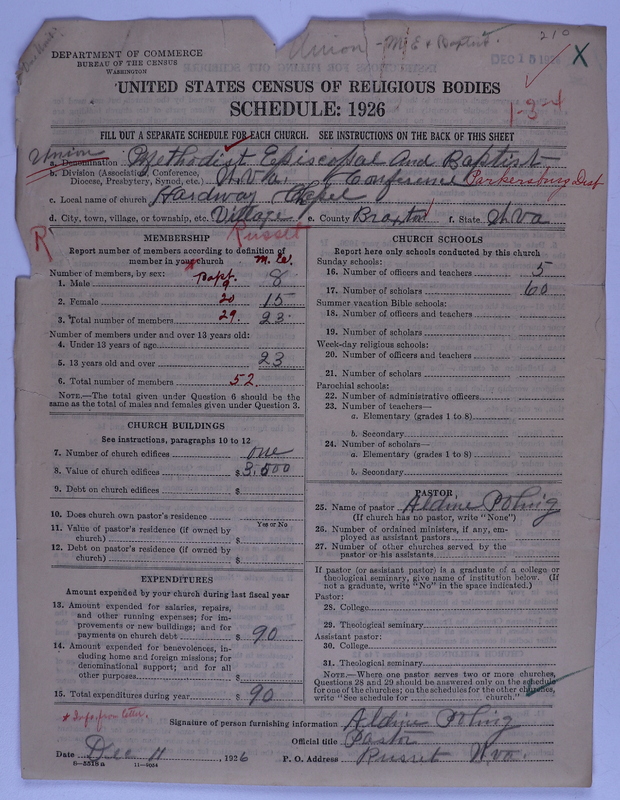 Union - M.E & Baptist. 210
DEPARTMENT OF COMMERCE
BUREAU OF THE CENSUS
WASHINGTON
DEC 15 X
UNITED STATES CENSUS OF RELIGIOUS BODIES
SCHEDULE: 1926
1-3-4
FILL OUT A SEPARATE SCHEDULE FOR EACH CHURCH. SEE INSTRUCTIONS ON THE BACK OF THIS SHEET
Union
a. Denomination Methodist Episcopal And Baptist
b. Division (Association, Conference, Diocese, Presbytery, Synod, etc.) W Va. Conference Parkersburg Dist
c. Local name of church Hardway Chapel
d. City, town, village, or township, etc. Village e. County Braxton f. State W Va
R Russet
MEMBERSHIP
Report number of members according to definition of
member in your church M.E.
Number of members, by sex: Bapt.
1. Male 9 8
2. Female 20 15
3. Total number of members 29. 23
Number of members under and over 13 years old:
4. Under 13 years of age
5. 13 years old and over 23
6. Total number of members 52
NOTE.—The total given under Question 6 should be
same as the total of males and females given under Question 3.
CHURCH BUILDINGS
See instructions, paragraphs 10 to 12
7. Number of church edifices one
8. Value of church edifices $3,500
9. Debt on church edifices $
10. Does church own pastor's residence
Yes or No
11. Value of pastor's residence (if owned by
church) $
12. Debt on pastor's residence (if owned by
church) $
EXPENDITURES
Amount expended by your church during last fiscal year
13. Amount expended for salaries, repairs,
and other running expenses; for im-
provements or new buildings; and for
payments on church debt $ 90
14. Amount expended for benevolences, in-
cluding home and foreign missions; for
denominational support; and for all
other purposes $
15. Total expenditures during year $ 90
CHURCH SCHOOLS
Report here only schools conducted by this church
Sunday schools:
16. Number of officers and teachers 5
17. Number of scholars 60
Summer vacation Bible schools:
18. Number of officers and teachers
19. Number of scholars
Week-day religious schools:
20. Number of officers and teachers
21. Number of scholars
Parochial schools:
22. Number of administrative officers
23. Number of teachers—
a. Elementary (grades 1 to 8)
b. Secondary
24. Number of scholars—
a. Elementary (grades 1 to 8)
b. Secondary
PASTOR
25. Name of pastor Aldine Poling
(If church has no pastor, write "None")
26. Number of ordained ministers, if any, em-
ployed as assistant pastors
27. Number of other churches served by the
pastor or his assistants
If pastor (or assistant pastor) is a graduate of a college or
theological seminary, give name of institution below. (If
not a graduate, write "No" in the space indicated.)
Pastor:
28. College
29. Theological seminary
Assistant pastor:
30. College
31. Theological seminary
NOTE.—Where one pastor serves two or more churches,
Questions 28 and 29 should be answered only on the schedule
for one of the churches; on the schedules for the other churches,
write "See schedule for church."
* Info. from letter.
Signature of person furnishing information Aldine Poling
Official title Pastor
Date Dec 11, 1926 P. O. Address Russet W. Va.
8—5518 a 11—9034